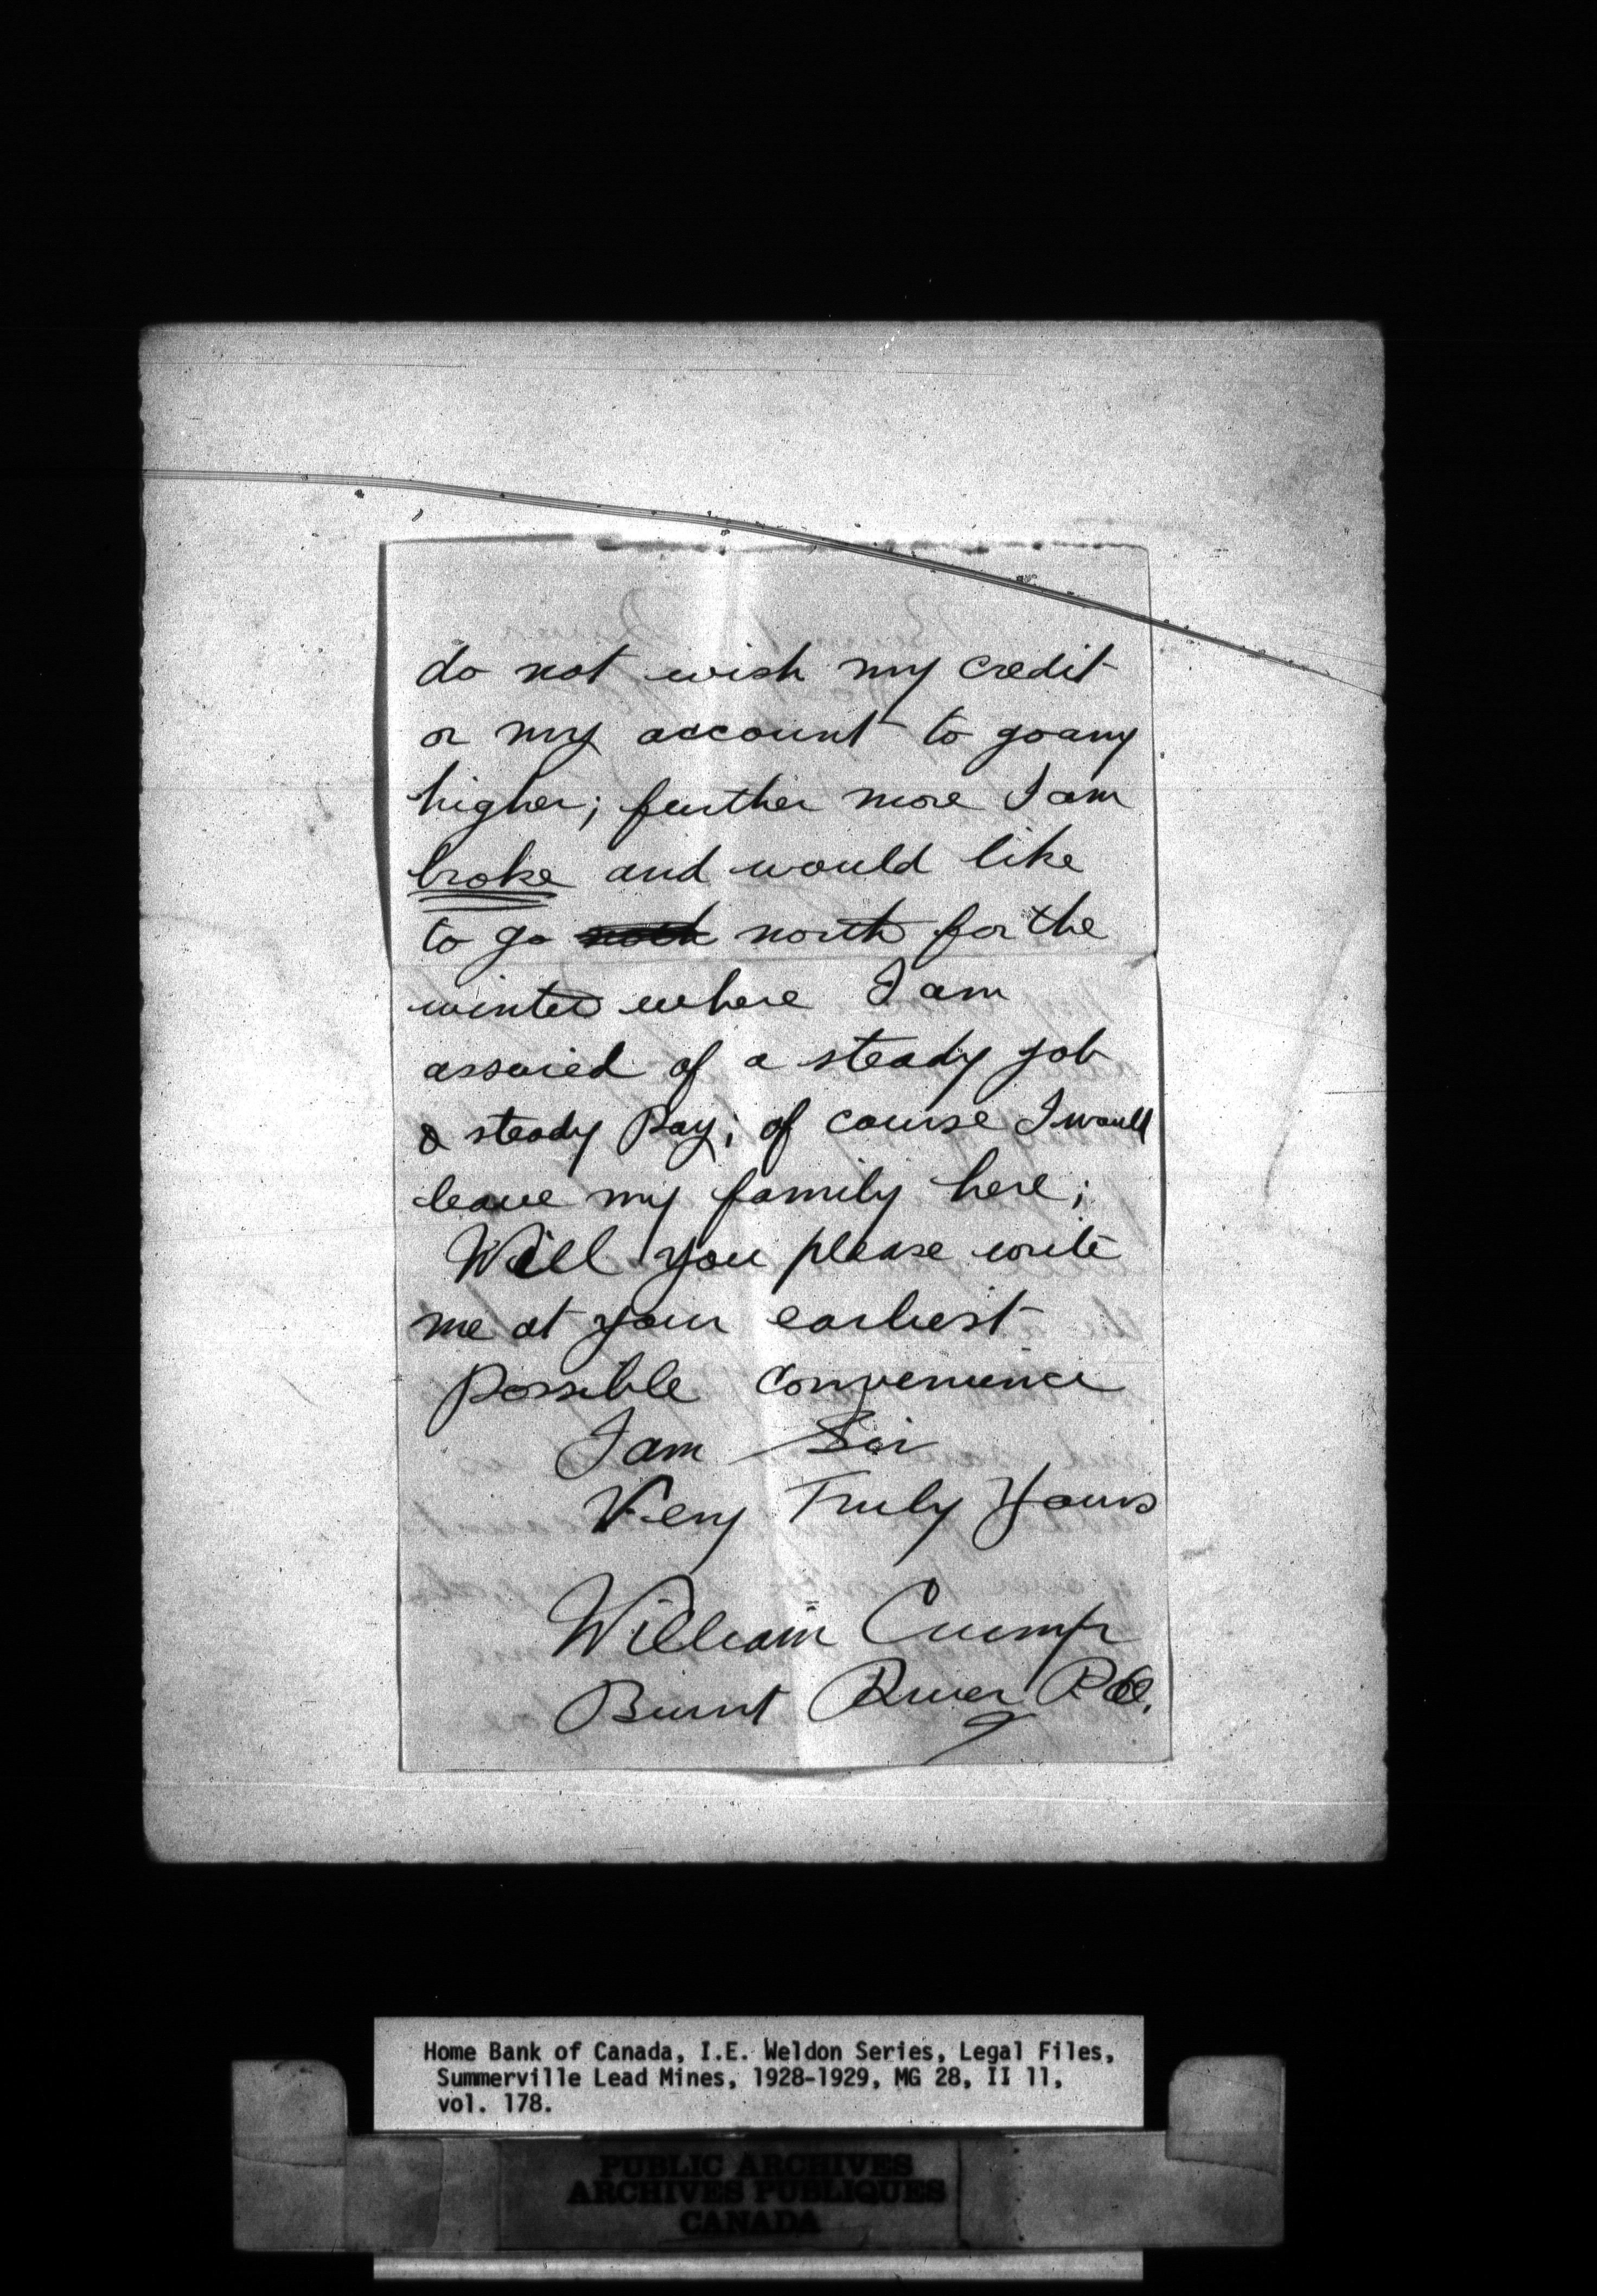 do not wish my credit
or my account to go any
higher; further more I am
broke and would like
to go noth north for the
winter where I am
assured of a steady job
& steady Pay; of course I would
leave my family here;
Will you please write
me at your earliest
Possible Convenience
I am Sir
Very Truly Yours
William Crump
Burnt River P.O.
Home Bank of Canada, I.E. Weldon Series, Legal Files,
Summerville Lead Mines, 1928-1929, MG 28, II 11,
vol. 178.
PUBLIC ARCHIVES
ARCHIVES PUBLIQUES
CANADA